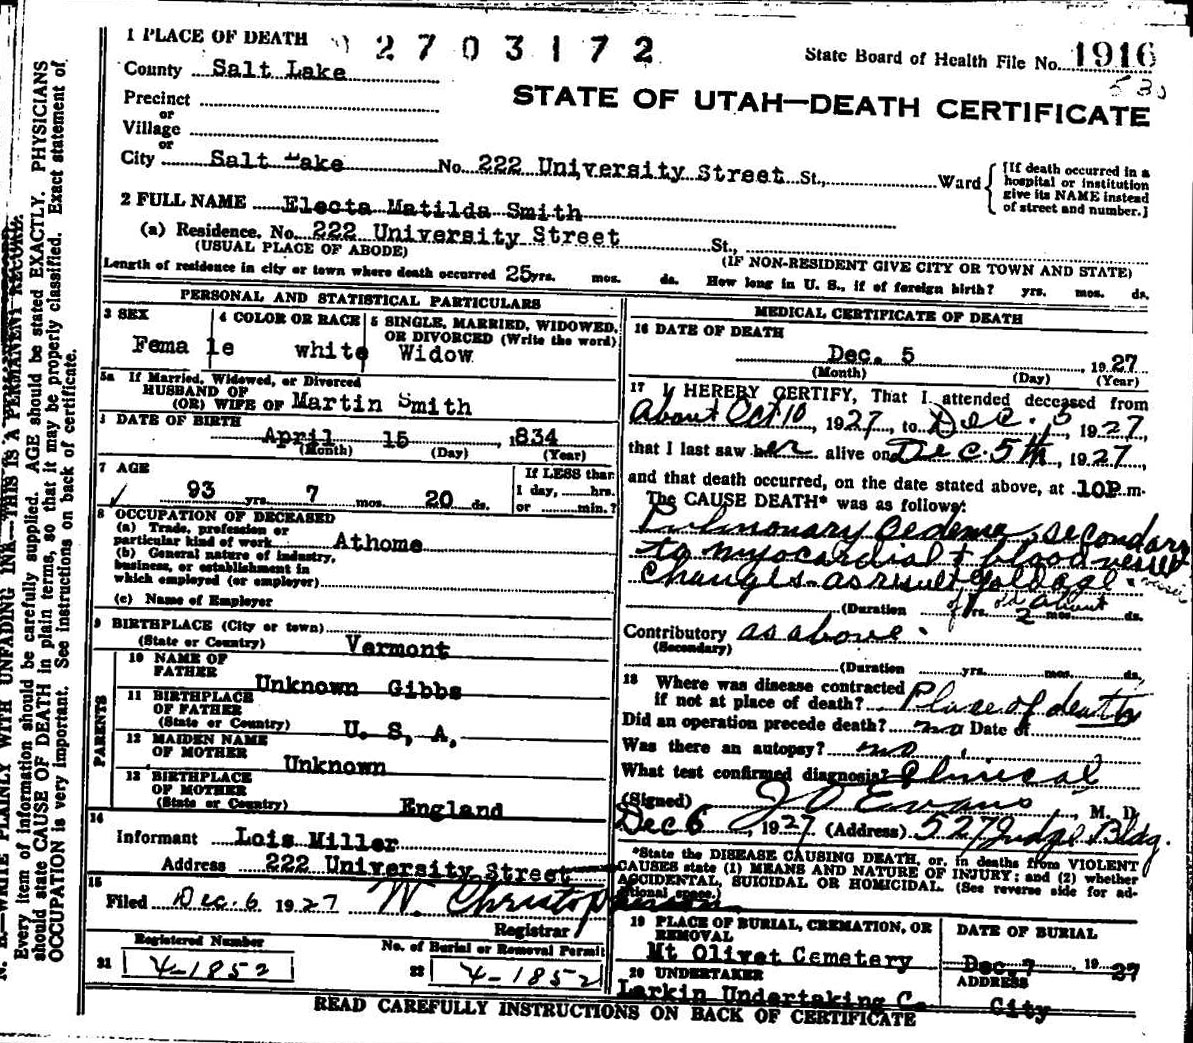 1 PLACE OF DEATH
2 7 0 3 1 7 2
State Board of Health File No. 1916
530
County Salt Lake
STATE OF UTAH—DEATH CERTIFICATE
Precinct
or
Village
or
City Salt Lake No. 222 University Street St., Ward
[If death occurred in a hospital or institution give its NAME instead of street and number.]
2 FULL NAME Electa Matilda Smith
(a) Residence. No. 222 University Street St.,
(USUAL PLACE OF ABODE) (IF NON-RESIDENT GIVE CITY OR TOWN AND STATE)
Length of residence in city or town where death occurred 25 yrs. mos. ds. How long in U. S., if of foreign birth? yrs. mos. ds.
PERSONAL AND STATISTICAL PARTICULARS
3 SEX
Female
4 COLOR OR RACE
white
5 SINGLE, MARRIED, WIDOWED,
OR DIVORCED (Write the word)
Widow
5a If Married, Widowed, or Divorced
HUSBAND OF
(OR) WIFE OF Martin Smith
DATE OF BIRTH
April 15, 1834
(Month) (Day) (Year)
7 AGE
93 yrs. 7 mos. 20 ds.
If LESS than
1 day, hrs.
or min.?
8 OCCUPATION OF DECEASED
(a) Trade, profession or
particular kind of work Athome
(b) General nature of industry,
business, or establishment in
which employed (or employer)
(c) Name of Employer
9 BIRTHPLACE (City or town)
(State or Country) Vermont
PARENTS
10 NAME OF
FATHER
Unknown Gibbs
11 BIRTHPLACE
OF FATHER
(State or Country) U. S, A,
12 MAIDEN NAME
OF MOTHER
Unknown
13 BIRTHPLACE
OF MOTHER
(State or Country) England
14
Informant Lois Miller
Address 222 University Street
15
Filed Dec. 6 1927
Registrar
Registered Number
21 4-1852
No. of Burial or Removal Permit
22 4-1852
MEDICAL CERTIFICATE OF DEATH
16 DATE OF DEATH
Dec. 5, 1927
(Month) (Day) (Year)
17 I HEREBY CERTIFY, That I attended deceased from
About Oct 10, 1927, to Dec. 5, 1927,
that I last saw her alive on Dec. 5th, 1927,
and that death occurred, on the date stated above, at 10P m.
The CAUSE DEATH* was as follows:
Pulmonary oedema, secondary
to myocardial + blood vessel
changes as result of old age
(Duration yrs. about 2 mos. ds.
Contributory as above.
(Secondary)
(Duration yrs. mos. ds,
18 Where was disease contracted
if not at place of death? Place of death
Did an operation precede death? no Date of
Was there an autopsy? no
What test confirmed diagnosis? Clinical
(Signed) J O Evans, M. D.
Dec 6, 1927 (Address) 527 Judge Bldg.
*State the DISEASE CAUSING DEATH, or, in deaths from VIOLENT
CAUSES state (1) MEANS AND NATURE OF INJURY; and (2) whether
ACCIDENTAL, SUICIDAL OR HOMICIDAL. (See reverse side for ad-
ditional space.)
19 PLACE OF BURIAL, CREMATION, OR
REMOVAL
Mt Olivet Cemetery
DATE OF BURIAL
Dec. 7, 1927
20 UNDERTAKER
Larkin Undertaking C.
ADDRESS
City
READ CAREFULLY INSTRUCTIONS ON BACK OF CERTIFICATE
N. B.—WRITE PLAINLY WITH UNFADING INK—THIS IS A PERMANENT RECORD.
Every item of information should be carefully supplied. AGE should be stated EXACTLY. PHYSICIANS
should state CAUSE OF DEATH in plain terms, so that it may be properly classified. Exact statement of
OCCUPATION is very important. See instructions on back of certificate.